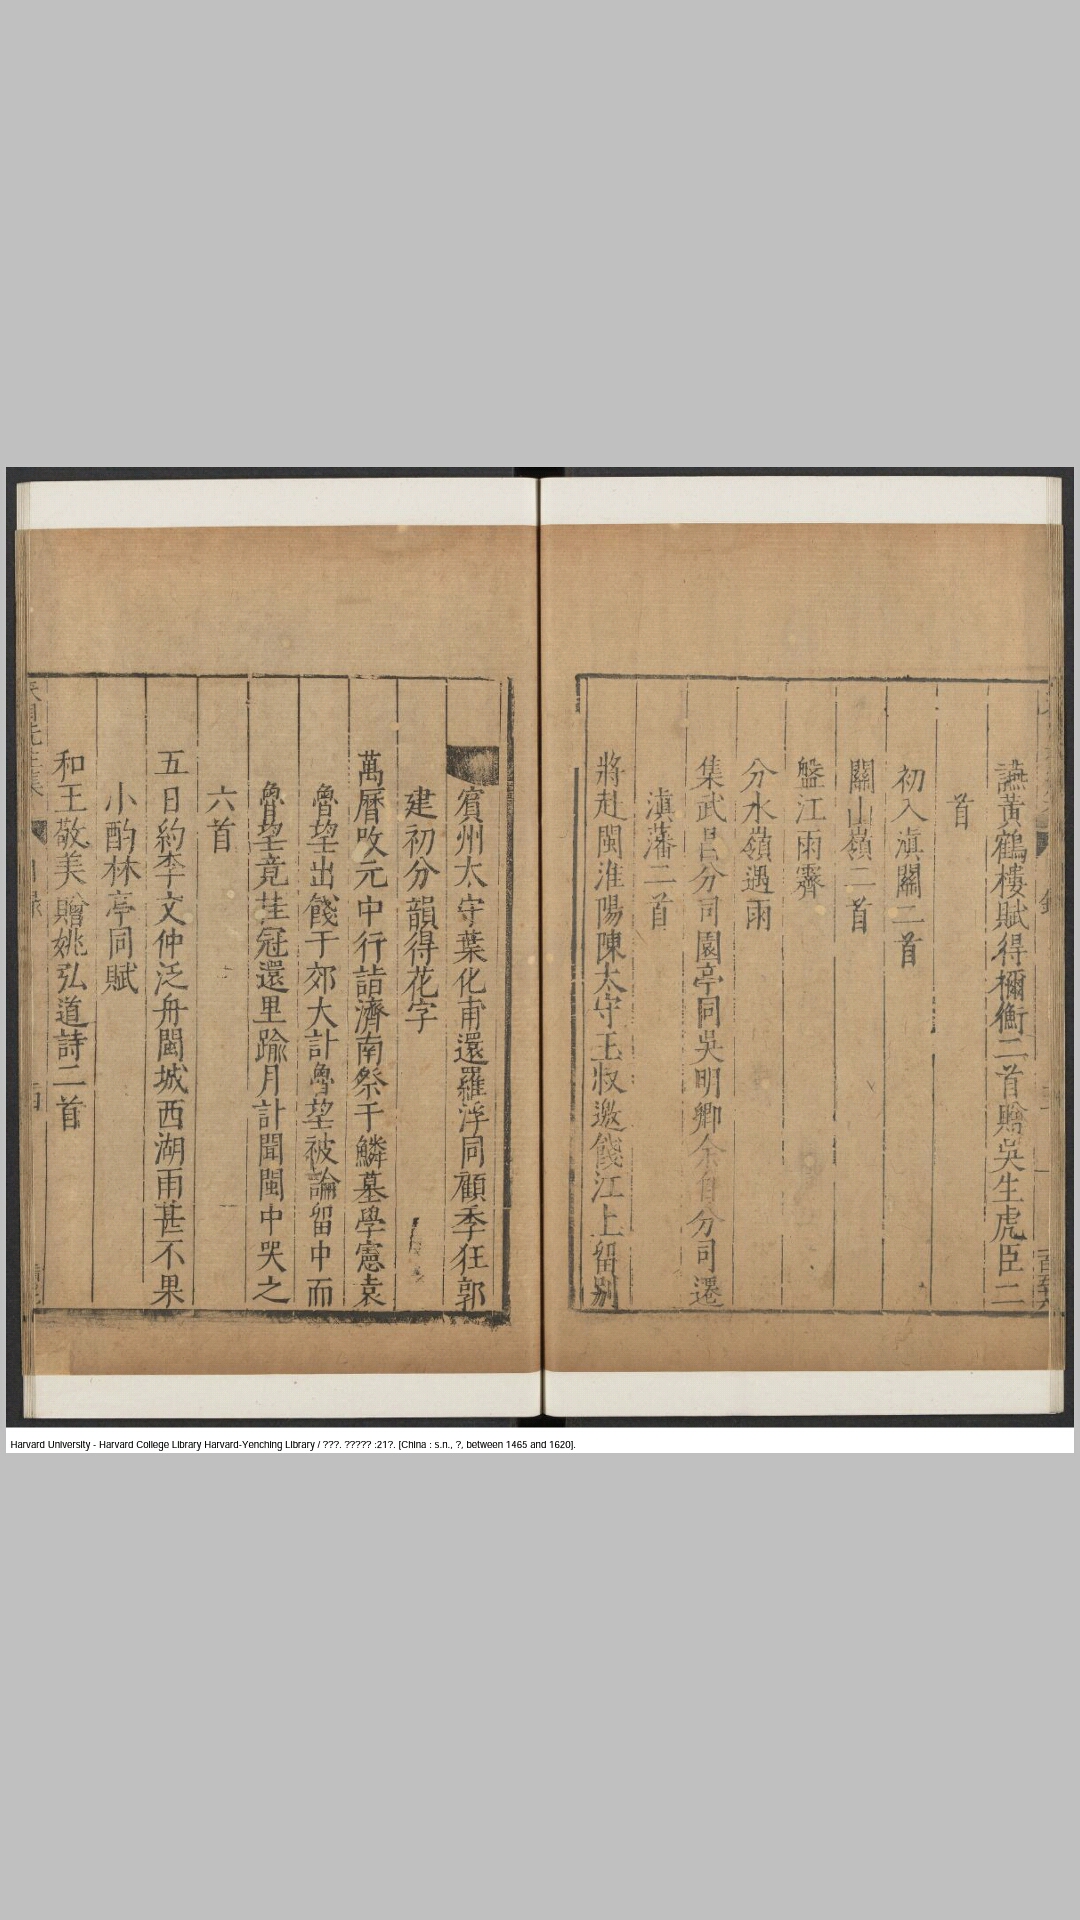 讌黃鶴樓賦得禰衡二首贈吳生虎臣二
首
初入滇關二首
關山嶺二首
盤江雨霽
分水嶺遇雨
集武昌分司園亭同吳明卿余自分司遷
滇藩二首
將赴閩淮陽陳太守玉叔邀餞江上留別
賓州太守葉化甫還羅浮同顧季狂郭
建初分韻得花字
萬曆攺元中行詣濟南祭于鱗墓學憲袁
魯望出餞于郊大計魯望被論留中而
魯望竟挂冠還里踰月訃聞閩中哭之
六首
五日約李文仲泛舟閩城西湖雨甚不果
小酌林亭同賦
和王敬美贈姚弘道詩二首
Harvard University - Harvard College Library Harvard-Yenching Library / ???. ????? :21?. [China : s.n., ?, between 1465 and 1620].